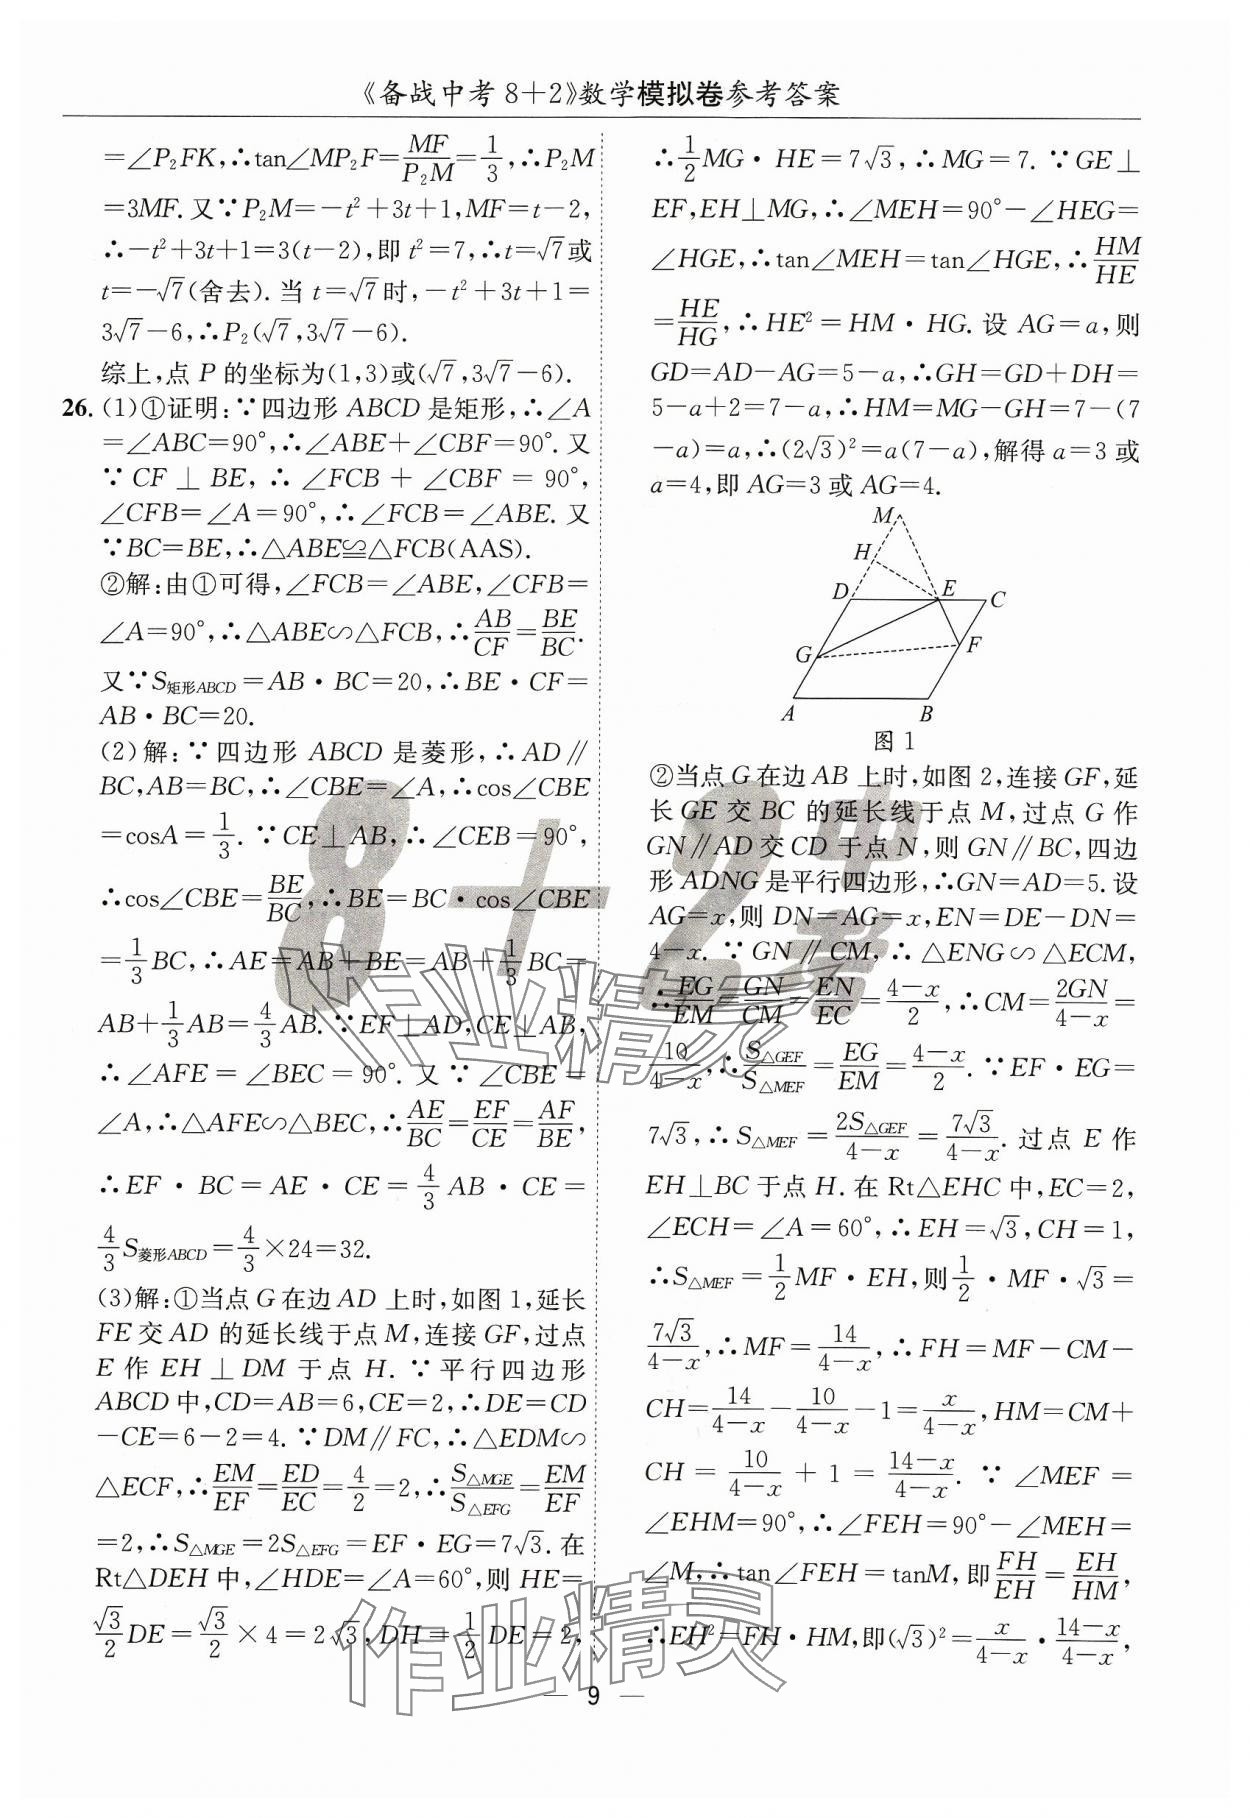 《备战中考8+2》数学模拟卷参考答案
=∠P₂FK,∴tan∠MP₂F=MF/P₂M=1/3,∴P₂M
=3MF. 又∵P₂M=-t²+3t+1,MF=t-2,
∴-t²+3t+1=3(t-2),即 t²=7,∴t=√7或
t=-√7(舍去). 当 t=√7时,-t²+3t+1=
3√7-6,∴P₂(√7,3√7-6).
综上,点 P 的坐标为(1,3)或(√7,3√7-6).
26. (1)①证明:∵四边形 ABCD 是矩形,∴∠A
=∠ABC=90°,∴∠ABE+∠CBF=90°. 又
∵ CF ⊥ BE, ∴ ∠FCB + ∠CBF = 90°,
∠CFB=∠A=90°,∴∠FCB=∠ABE. 又
∵BC=BE,∴△ABE≌△FCB(AAS).
②解:由①可得,∠FCB=∠ABE,∠CFB=
∠A=90°,∴△ABE∽△FCB,∴AB/CF=BE/BC.
又∵S矩形ABCD=AB·BC=20,∴BE·CF=
AB·BC=20.
(2)解:∵四边形 ABCD 是菱形,∴AD∥
BC,AB=BC,∴∠CBE=∠A,∴cos∠CBE
=cosA=1/3. ∵CE⊥AB,∴∠CEB=90°,
∴cos∠CBE=BE/BC,∴BE=BC·cos∠CBE
=1/3BC,∴AE=AB+BE=AB+1/3BC=
AB+1/3AB=4/3AB. ∵EF⊥AD,CE⊥AB,
∴∠AFE=∠BEC=90°. 又∵∠CBE=
∠A,∴△AFE∽△BEC,∴AE/BC=EF/CE=AF/BE,
∴EF·BC=AE·CE=4/3AB·CE=
4/3S菱形ABCD=4/3×24=32.
(3)解:①当点 G 在边 AD 上时,如图 1,延长
FE 交 AD 的延长线于点 M,连接 GF,过点
E 作 EH⊥DM 于点 H. ∵平行四边形
ABCD 中,CD=AB=6,CE=2,∴DE=CD
-CE=6-2=4. ∵DM∥FC,∴△EDM∽
△ECF,∴EM/EF=ED/EC=4/2=2,∴S△MGE/S△EFG=EM/EF
=2,∴S△MGE=2S△EFG=EF·EG=7√3. 在
Rt△DEH 中,∠HDE=∠A=60°,则 HE=
√3/2DE=√3/2×4=2√3,DH=1/2DE=2,
∴1/2MG·HE=7√3,∴MG=7. ∵GE⊥
EF,EH⊥MG,∴∠MEH=90°-∠HEG=
∠HGE,∴tan∠MEH=tan∠HGE,∴HM/HE
=HE/HG,∴HE²=HM·HG. 设 AG=a,则
GD=AD-AG=5-a,∴GH=GD+DH=
5-a+2=7-a,∴HM=MG-GH=7-(7
-a)=a,∴(2√3)²=a(7-a),解得 a=3 或
a=4,即 AG=3 或 AG=4.
M
H
D
E
C
G
F
A
B
图 1
②当点 G 在边 AB 上时,如图 2,连接 GF,延
长 GE 交 BC 的延长线于点 M,过点 G 作
GN∥AD 交 CD 于点 N,则 GN∥BC,四边
形 ADNG 是平行四边形,∴GN=AD=5. 设
AG=x,则 DN=AG=x,EN=DE-DN=
4-x. ∵GN∥CM,∴△ENG∽△ECM,
∴EG/EM=GN/CM=EN/EC=(4-x)/2,∴CM=2GN/(4-x)=
10/(4-x),∴S△GEF/S△MEF=EG/EM=(4-x)/2. ∵EF·EG=
7√3,∴S△MEF=2S△GEF/(4-x)=7√3/(4-x). 过点 E 作
EH⊥BC 于点 H. 在 Rt△EHC 中,EC=2,
∠ECH=∠A=60°,∴EH=√3,CH=1,
∴S△MEF=1/2MF·EH,则1/2·MF·√3=
7√3/(4-x),∴MF=14/(4-x),∴FH=MF-CM-
CH=14/(4-x)-10/(4-x)-1=x/(4-x),HM=CM+
CH=10/(4-x)+1=(14-x)/(4-x). ∵∠MEF=
∠EHM=90°,∴∠FEH=90°-∠MEH=
∠M,∴tan∠FEH=tanM,即FH/EH=EH/HM,
∴EH²=FH·HM,即(√3)²=x/(4-x)·(14-x)/(4-x),
— 9 —
8+2中考
作业精灵
作业精灵